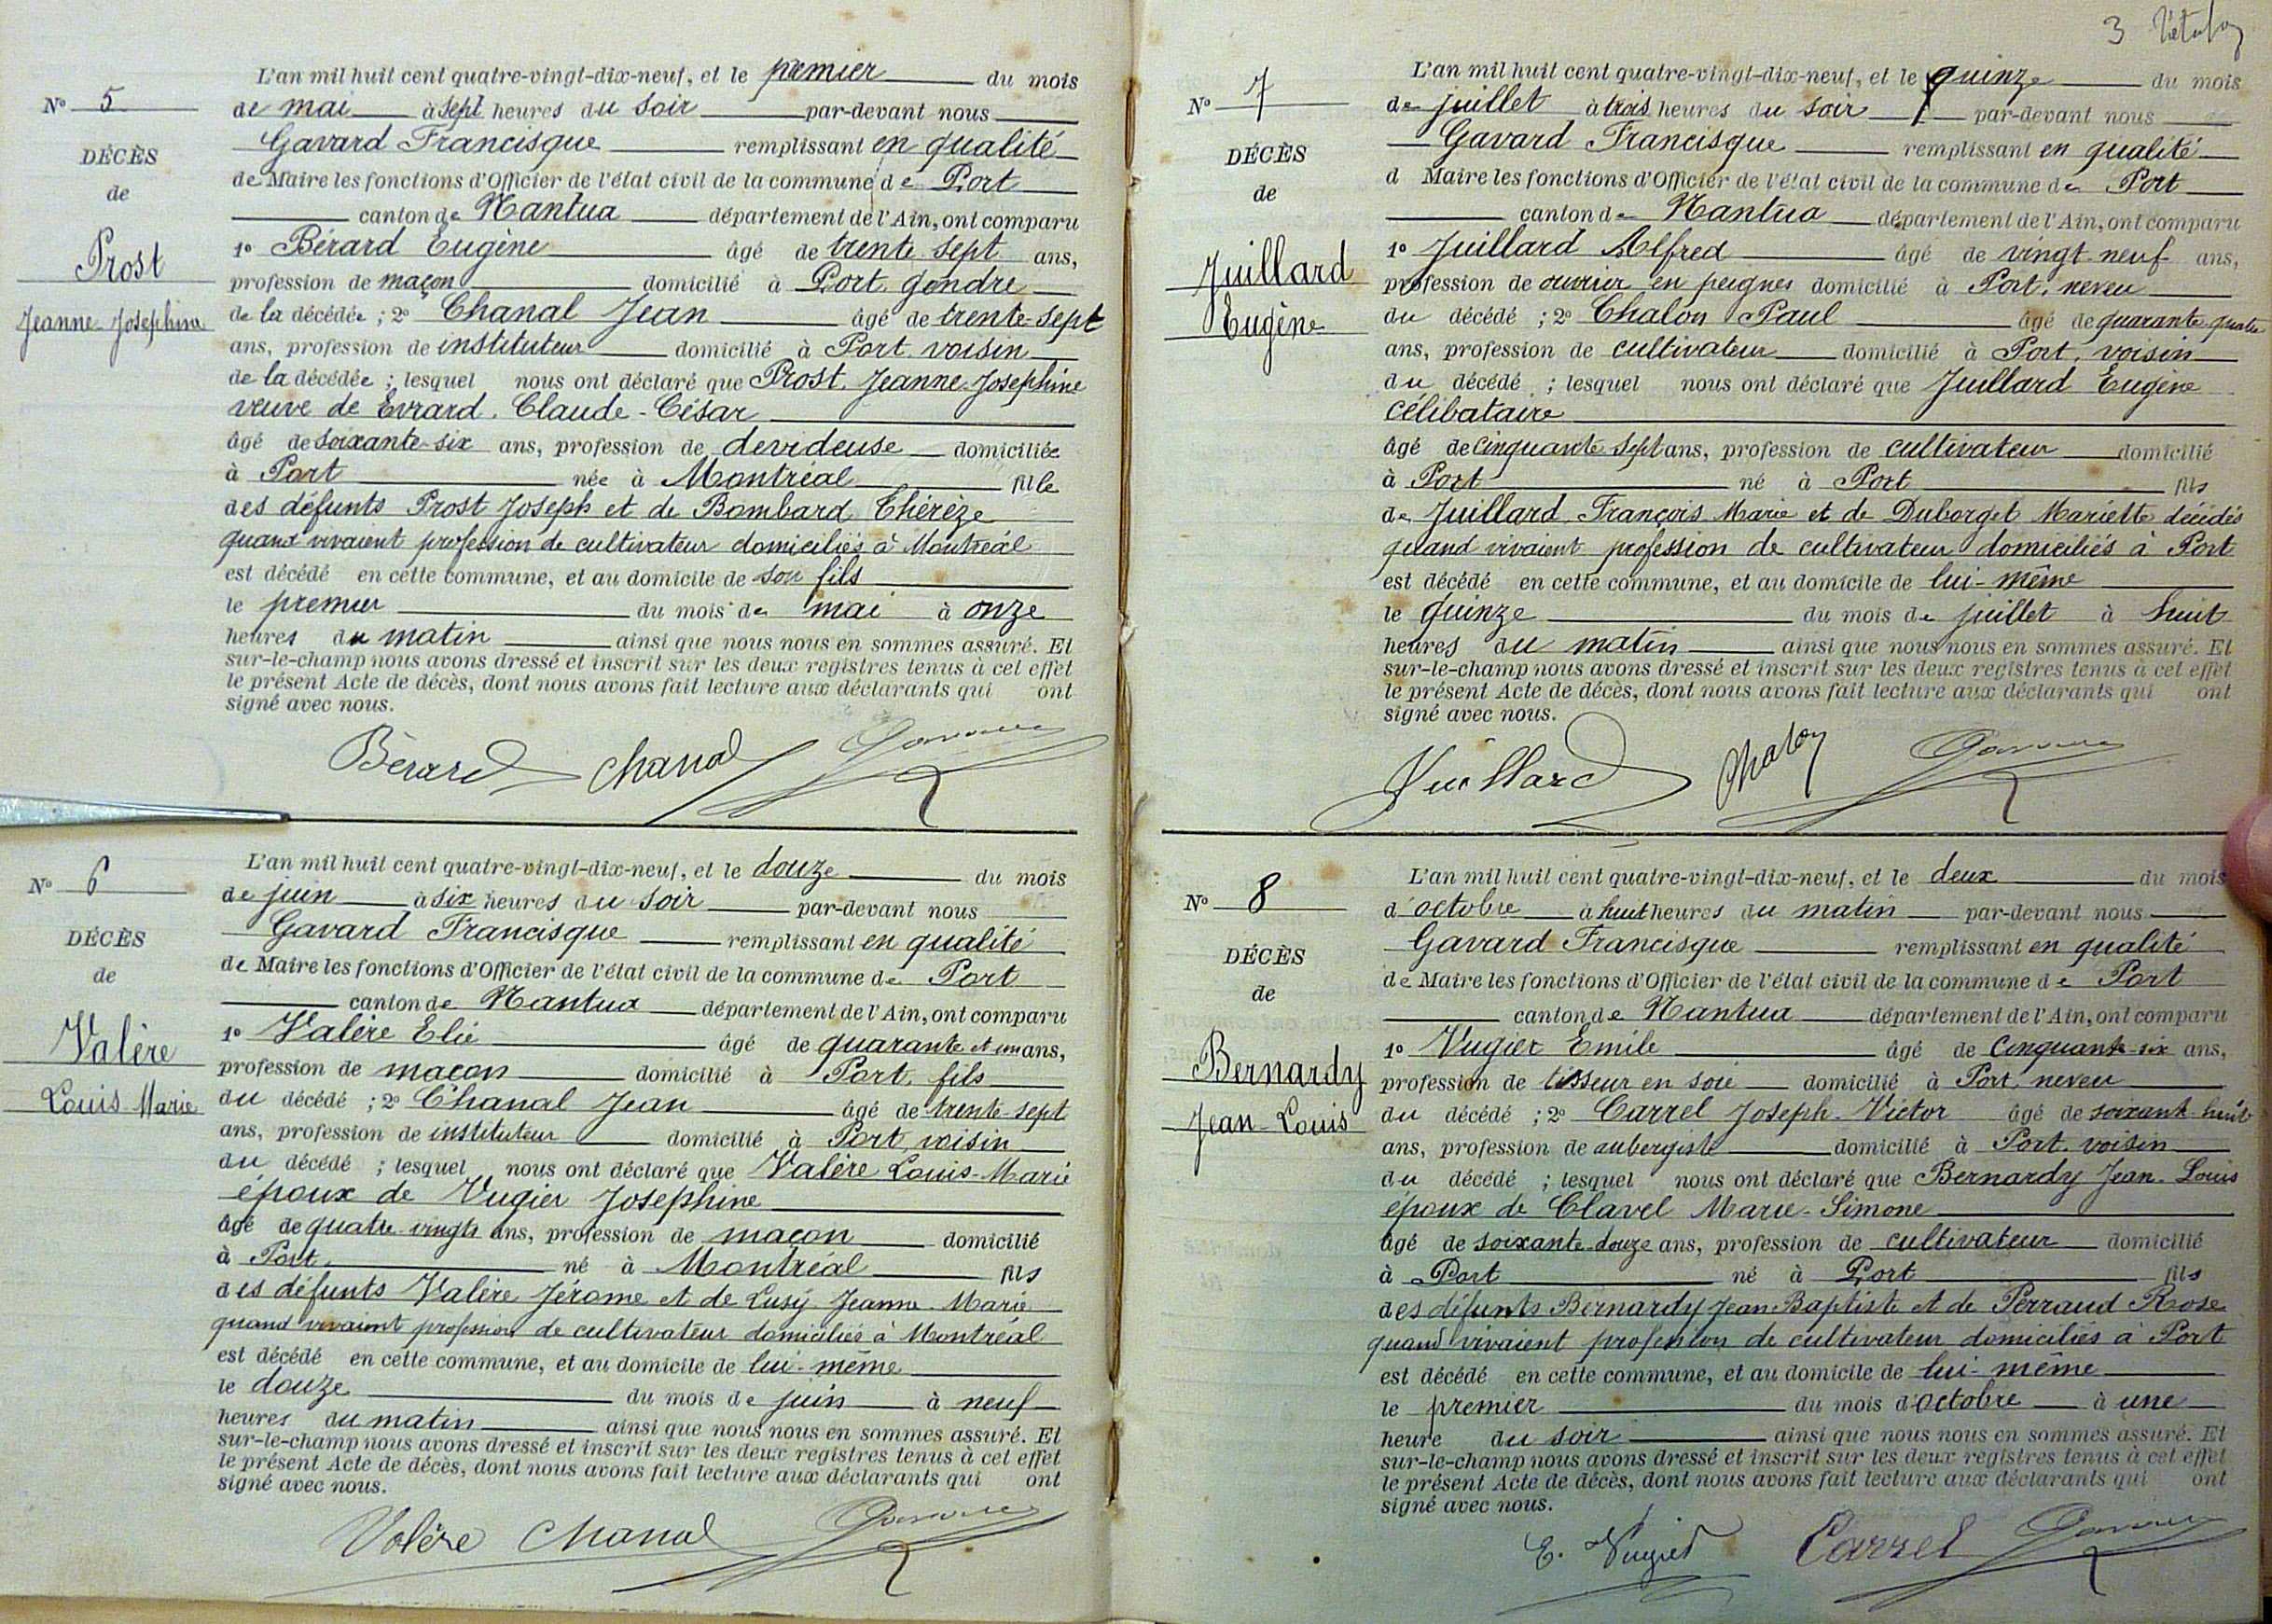 N° 5
DÉCÈS
de
Prost
Jeanne Josephine
L'an mil huit cent quatre-vingt-dix-neuf, et le premier du mois
de mai à sept heures du soir par-devant nous
Gavard Francisque remplissant en qualité
de Maire les fonctions d'Officier de l'état civil de la commune de Port
canton de Nantua département de l'Ain, ont comparu
1° Bérard Eugène âgé de trente sept ans,
profession de maçon domicilié à Port, gendre
de la décédée ; 2° Chanal Jean âgé de trente-sept
ans, profession de instituteur domicilié à Port voisin
de la décédée ; lesquel nous ont déclaré que Prost Jeanne-Josephine
veuve de Evrard Claude-César
âgé de soixante-six ans, profession de devideuse domiciliée
à Port née à Montréal fille
des défunts Prost Joseph et de Bombard Thérèze
quand vivaient profession de cultivateur domiciliés à Montréal
est décédé en cette commune, et au domicile de son fils
le premier du mois de mai à onze
heures du matin ainsi que nous nous en sommes assuré. Et
sur-le-champ nous avons dressé et inscrit sur les deux registres tenus à cet effet
le présent Acte de décès, dont nous avons fait lecture aux déclarants qui ont
signé avec nous.
Bérard Chanal
N° 6
DÉCÈS
de
Valère
Louis Marie
L'an mil huit cent quatre-vingt-dix-neuf, et le douze du mois
de juin à six heures du soir par-devant nous
Gavard Francisque remplissant en qualité
de Maire les fonctions d'Officier de l'état civil de la commune de Port
canton de Nantua département de l'Ain, ont comparu
1° Valère Elie âgé de quarante et un ans,
profession de maçon domicilié à Port, fils
du décédé ; 2° Chanal Jean âgé de trente sept
ans, profession de instituteur domicilié à Port, voisin
du décédé ; lesquel nous ont déclaré que Valère Louis-Marie
époux de Vugier Josephine
âgé de quatre-vingts ans, profession de maçon domicilié
à Port né à Montréal fils
des défunts Valère Jérome et de Lusy Jeanne-Marie
quand vivaient profession de cultivateur domiciliés à Montréal
est décédé en cette commune, et au domicile de lui-même
le douze du mois de juin à neuf
heures du matin ainsi que nous nous en sommes assuré. Et
sur-le-champ nous avons dressé et inscrit sur les deux registres tenus à cet effet
le présent Acte de décès, dont nous avons fait lecture aux déclarants qui ont
signé avec nous.
Valère Chanal
3
N° 7
DÉCÈS
de
Juillard
Eugène
L'an mil huit cent quatre-vingt-dix-neuf, et le quinze du mois
de juillet à trois heures du soir par-devant nous
Gavard Francisque remplissant en qualité
d Maire les fonctions d'Officier de l'état civil de la commune de Port
canton de Nantua département de l'Ain, ont comparu
1° Juillard Alfred âgé de vingt neuf ans,
profession de ouvrier en peignes domicilié à Port, neveu
du décédé ; 2° Chalon Paul âgé de quarante quatre
ans, profession de cultivateur domicilié à Port, voisin
du décédé ; lesquel nous ont déclaré que Juillard Eugène
célibataire
âgé de cinquante sept ans, profession de cultivateur domicilié
à Port né à Port fils
de Juillard François Marie et de Duborget Mariette décédés
quand vivaient profession de cultivateur domiciliés à Port
est décédé en cette commune, et au domicile de lui-même
le quinze du mois de juillet à huit
heures du matin ainsi que nous nous en sommes assuré. Et
sur-le-champ nous avons dressé et inscrit sur les deux registres tenus à cet effet
le présent Acte de décès, dont nous avons fait lecture aux déclarants qui ont
signé avec nous.
Juillard Chalon
N° 8
DÉCÈS
de
Bernardy
Jean-Louis
L'an mil huit cent quatre-vingt-dix-neuf, et le deux du mois
d'octobre à huit heures du matin par-devant nous
Gavard Francisque remplissant en qualité
de Maire les fonctions d'Officier de l'état civil de la commune de Port
canton de Nantua département de l'Ain, ont comparu
1° Vugier Emile âgé de cinquante-six ans,
profession de tisseur en soie domicilié à Port, neveu
du décédé ; 2° Carrel Joseph-Victor âgé de soixante-huit
ans, profession de aubergiste domicilié à Port, voisin
du décédé ; lesquel nous ont déclaré que Bernardy Jean-Louis
époux de Clavel Marie-Simone
âgé de soixante-douze ans, profession de cultivateur domicilié
à Port né à Port fils
des défunts Bernardy Jean-Baptiste et de Perraud Rose
quand vivaient profession de cultivateur domiciliés à Port
est décédé en cette commune, et au domicile de lui-même
le premier du mois d'octobre à une
heure du soir ainsi que nous nous en sommes assuré. Et
sur-le-champ nous avons dressé et inscrit sur les deux registres tenus à cet effet
le présent Acte de décès, dont nous avons fait lecture aux déclarants qui ont
signé avec nous.
E. Vugier Carrel